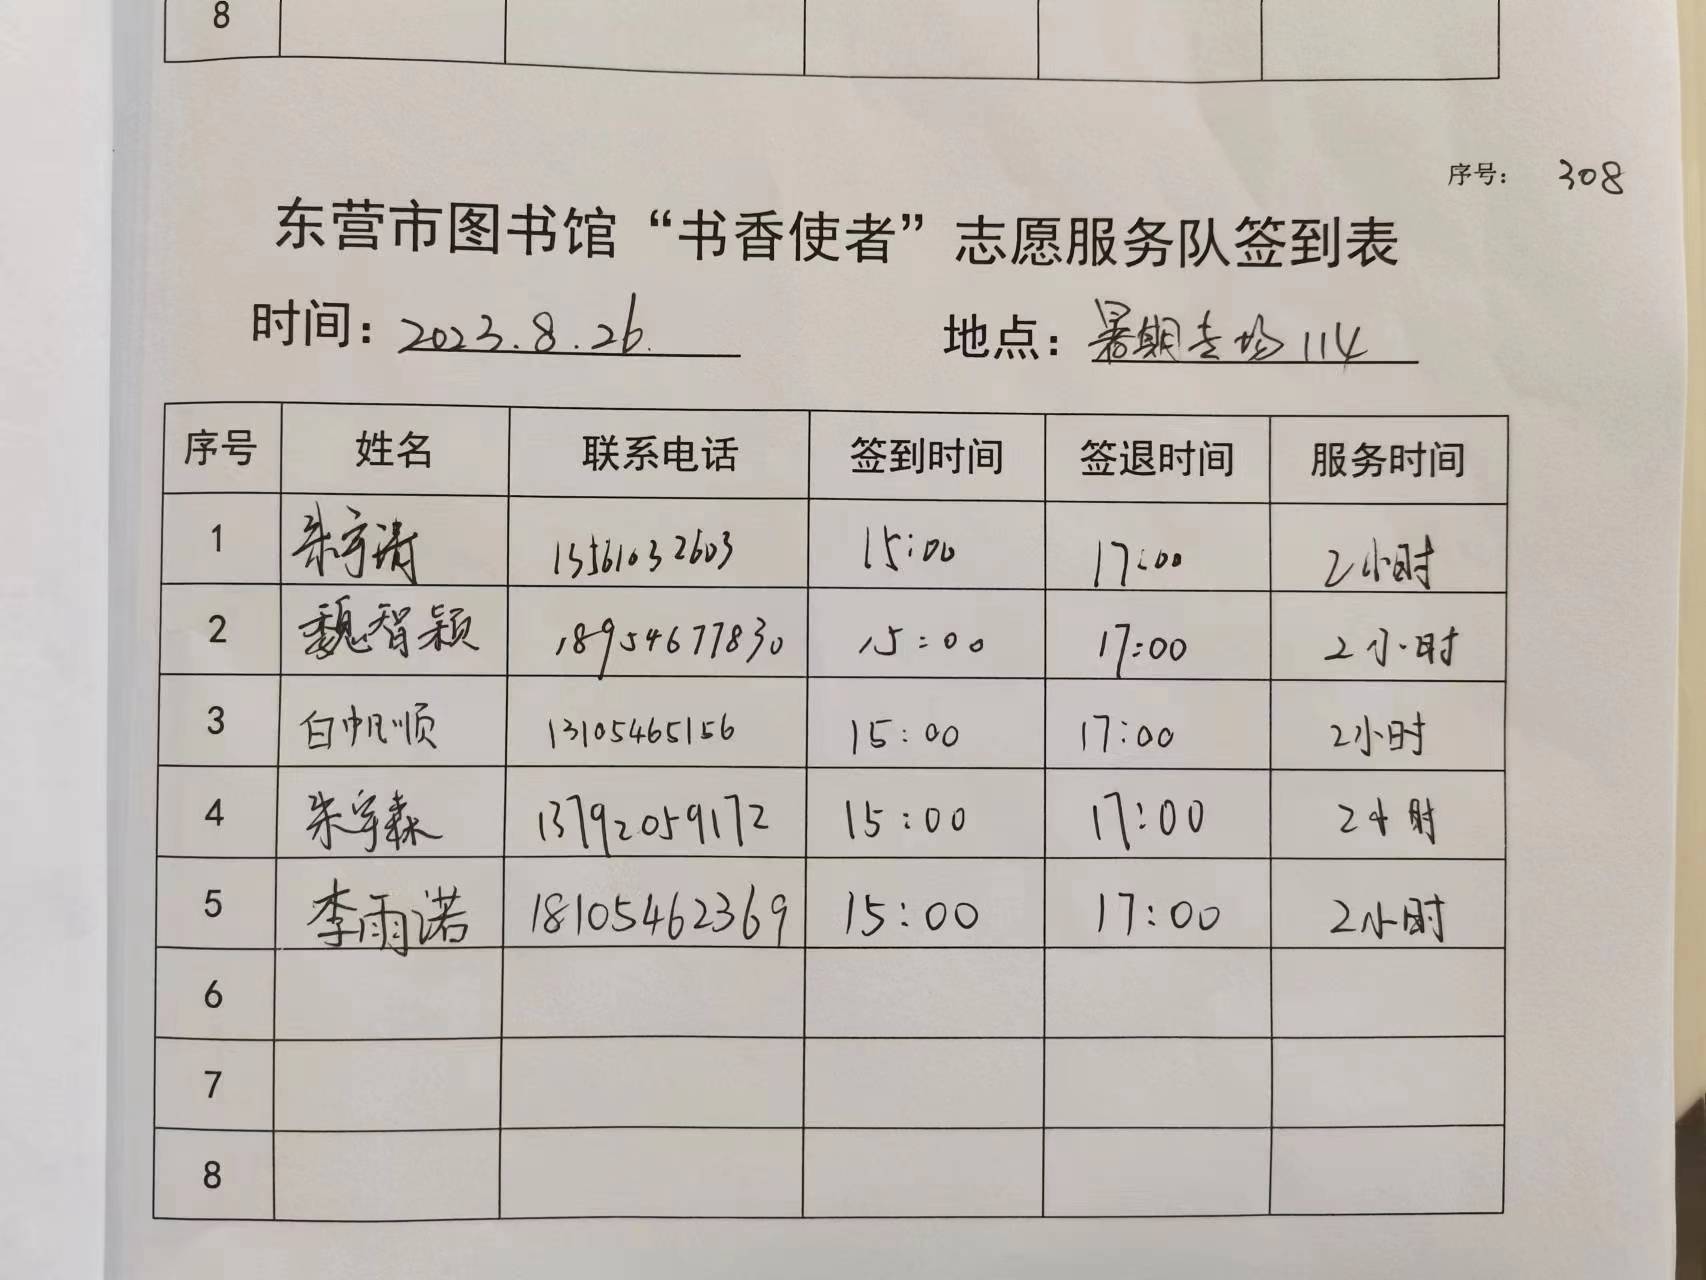 8
序号： 308
东营市图书馆“书香使者”志愿服务队签到表
时间：2023.8.26. 地点：暑期专场114
序号 姓名 联系电话 签到时间 签退时间 服务时间
1 朱宇清 13561032603 15:00 17:00 2小时
2 魏智颖 18954677830 15:00 17:00 2小时
3 白帆顺 13105465156 15:00 17:00 2小时
4 朱宇森 13792059172 15:00 17:00 2小时
5 李雨诺 18105462369 15:00 17:00 2小时
6
7
8